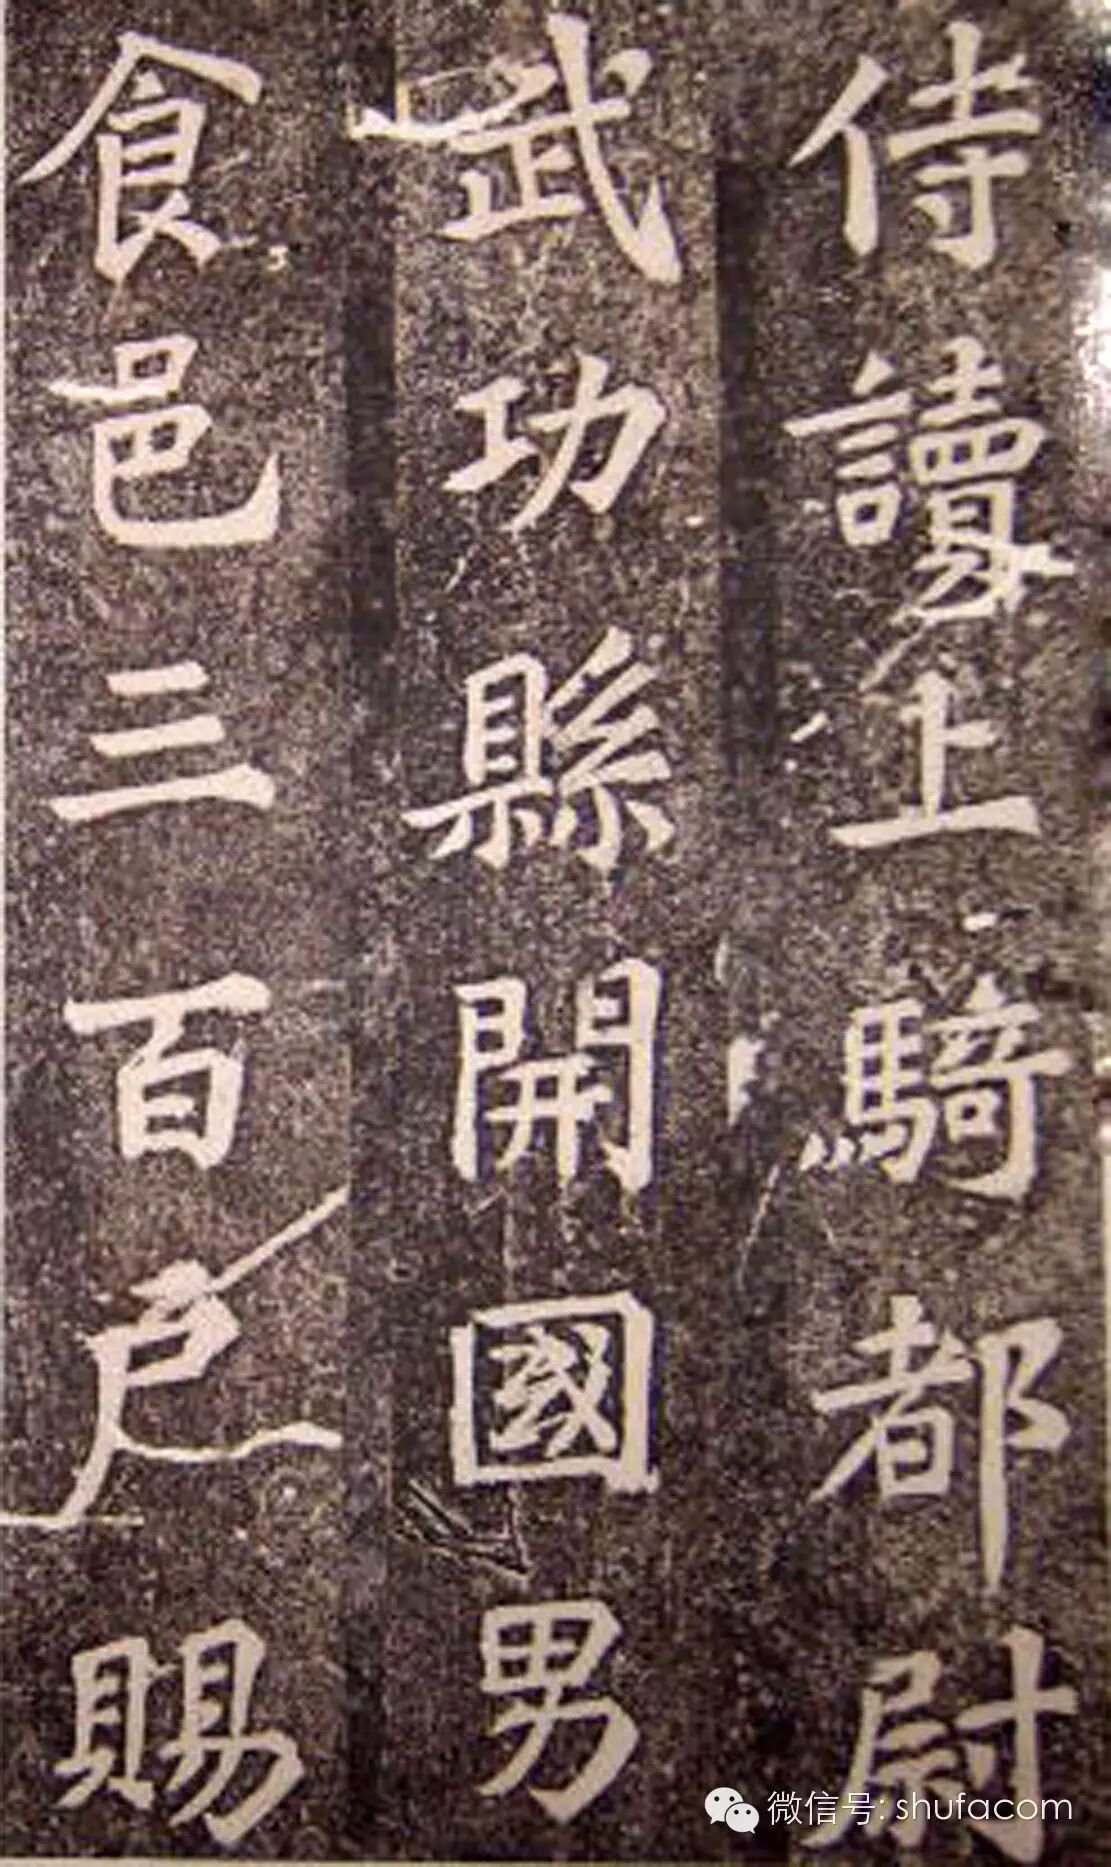 侍讀上騎都尉
武功縣開國男
食邑三百户賜
微信号: shufacom